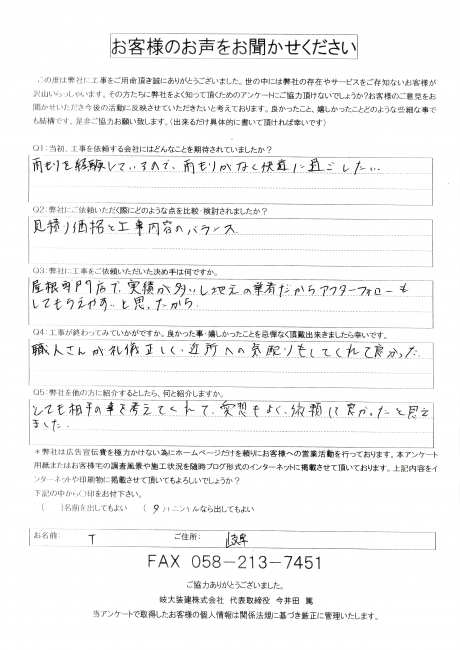 お客様のお声をお聞かせください
この度は弊社に工事をご用命頂き誠にありがとうございました。世の中には弊社の存在やサービスをご存知ないお客様が
沢山いらっしゃいます。その方たちに弊社をよく知って頂くためのアンケートにご協力頂けないでしょうか?お客様のご意見をお
聞かせいただき今後の活動に反映させていただきたいと考えております。良かったこと、嬉しかったことどのような些細な事で
も結構です。是非ご協力お願い致します。(出来るだけ具体的に書いて頂ければ幸いです)
Q1:当初、工事を依頼する会社にはどんなことを期待されていましたか?
雨もりを経験しているので、雨もりがなく快適に過ごしたい
Q2:弊社にご依頼いただく際にどのような点を比較・検討されましたか?
見積り価格と工事内容のバランス
Q3:弊社に工事をご依頼いただいた決め手は何ですか。
屋根専門店で、実績が多いし地元の業者だからアフターフォローも
してもらえやすいと思ったから
Q4:工事が終わってみていかがですか。良かった事・嬉しかったことを忌憚なく頂戴出来ましたら幸いです。
職人さんが礼儀正しく、近所への気配りもしてくれて良かった
Q5:弊社を他の方に紹介するとしたら、何と紹介しますか。
とても相手の事を考えてくれて、愛想もよく、依頼して良かったと思え
ました
*弊社は広告宣伝費を極力かけない為にホームページだけを頼りにお客様への営業活動を行っております。本アンケート
用紙またはお客様宅の調査風景や施工状況を随時ブログ形式のインターネットに掲載させて頂いております。上記内容をイ
ンターネットや印刷物に掲載させて頂いてもよろしいでしょうか?
下記の中から〇印をお付下さい。
( )名前を出してもよい ( )イニシャルなら出してもよい
お名前: T ご住所: 岐阜
FAX 058-213-7451
ご協力ありがとうございました。
岐大装建株式会社 代表取締役 今井田 篤
当アンケートで取得したお客様の個人情報は関係法規に基づき厳正に管理いたします。